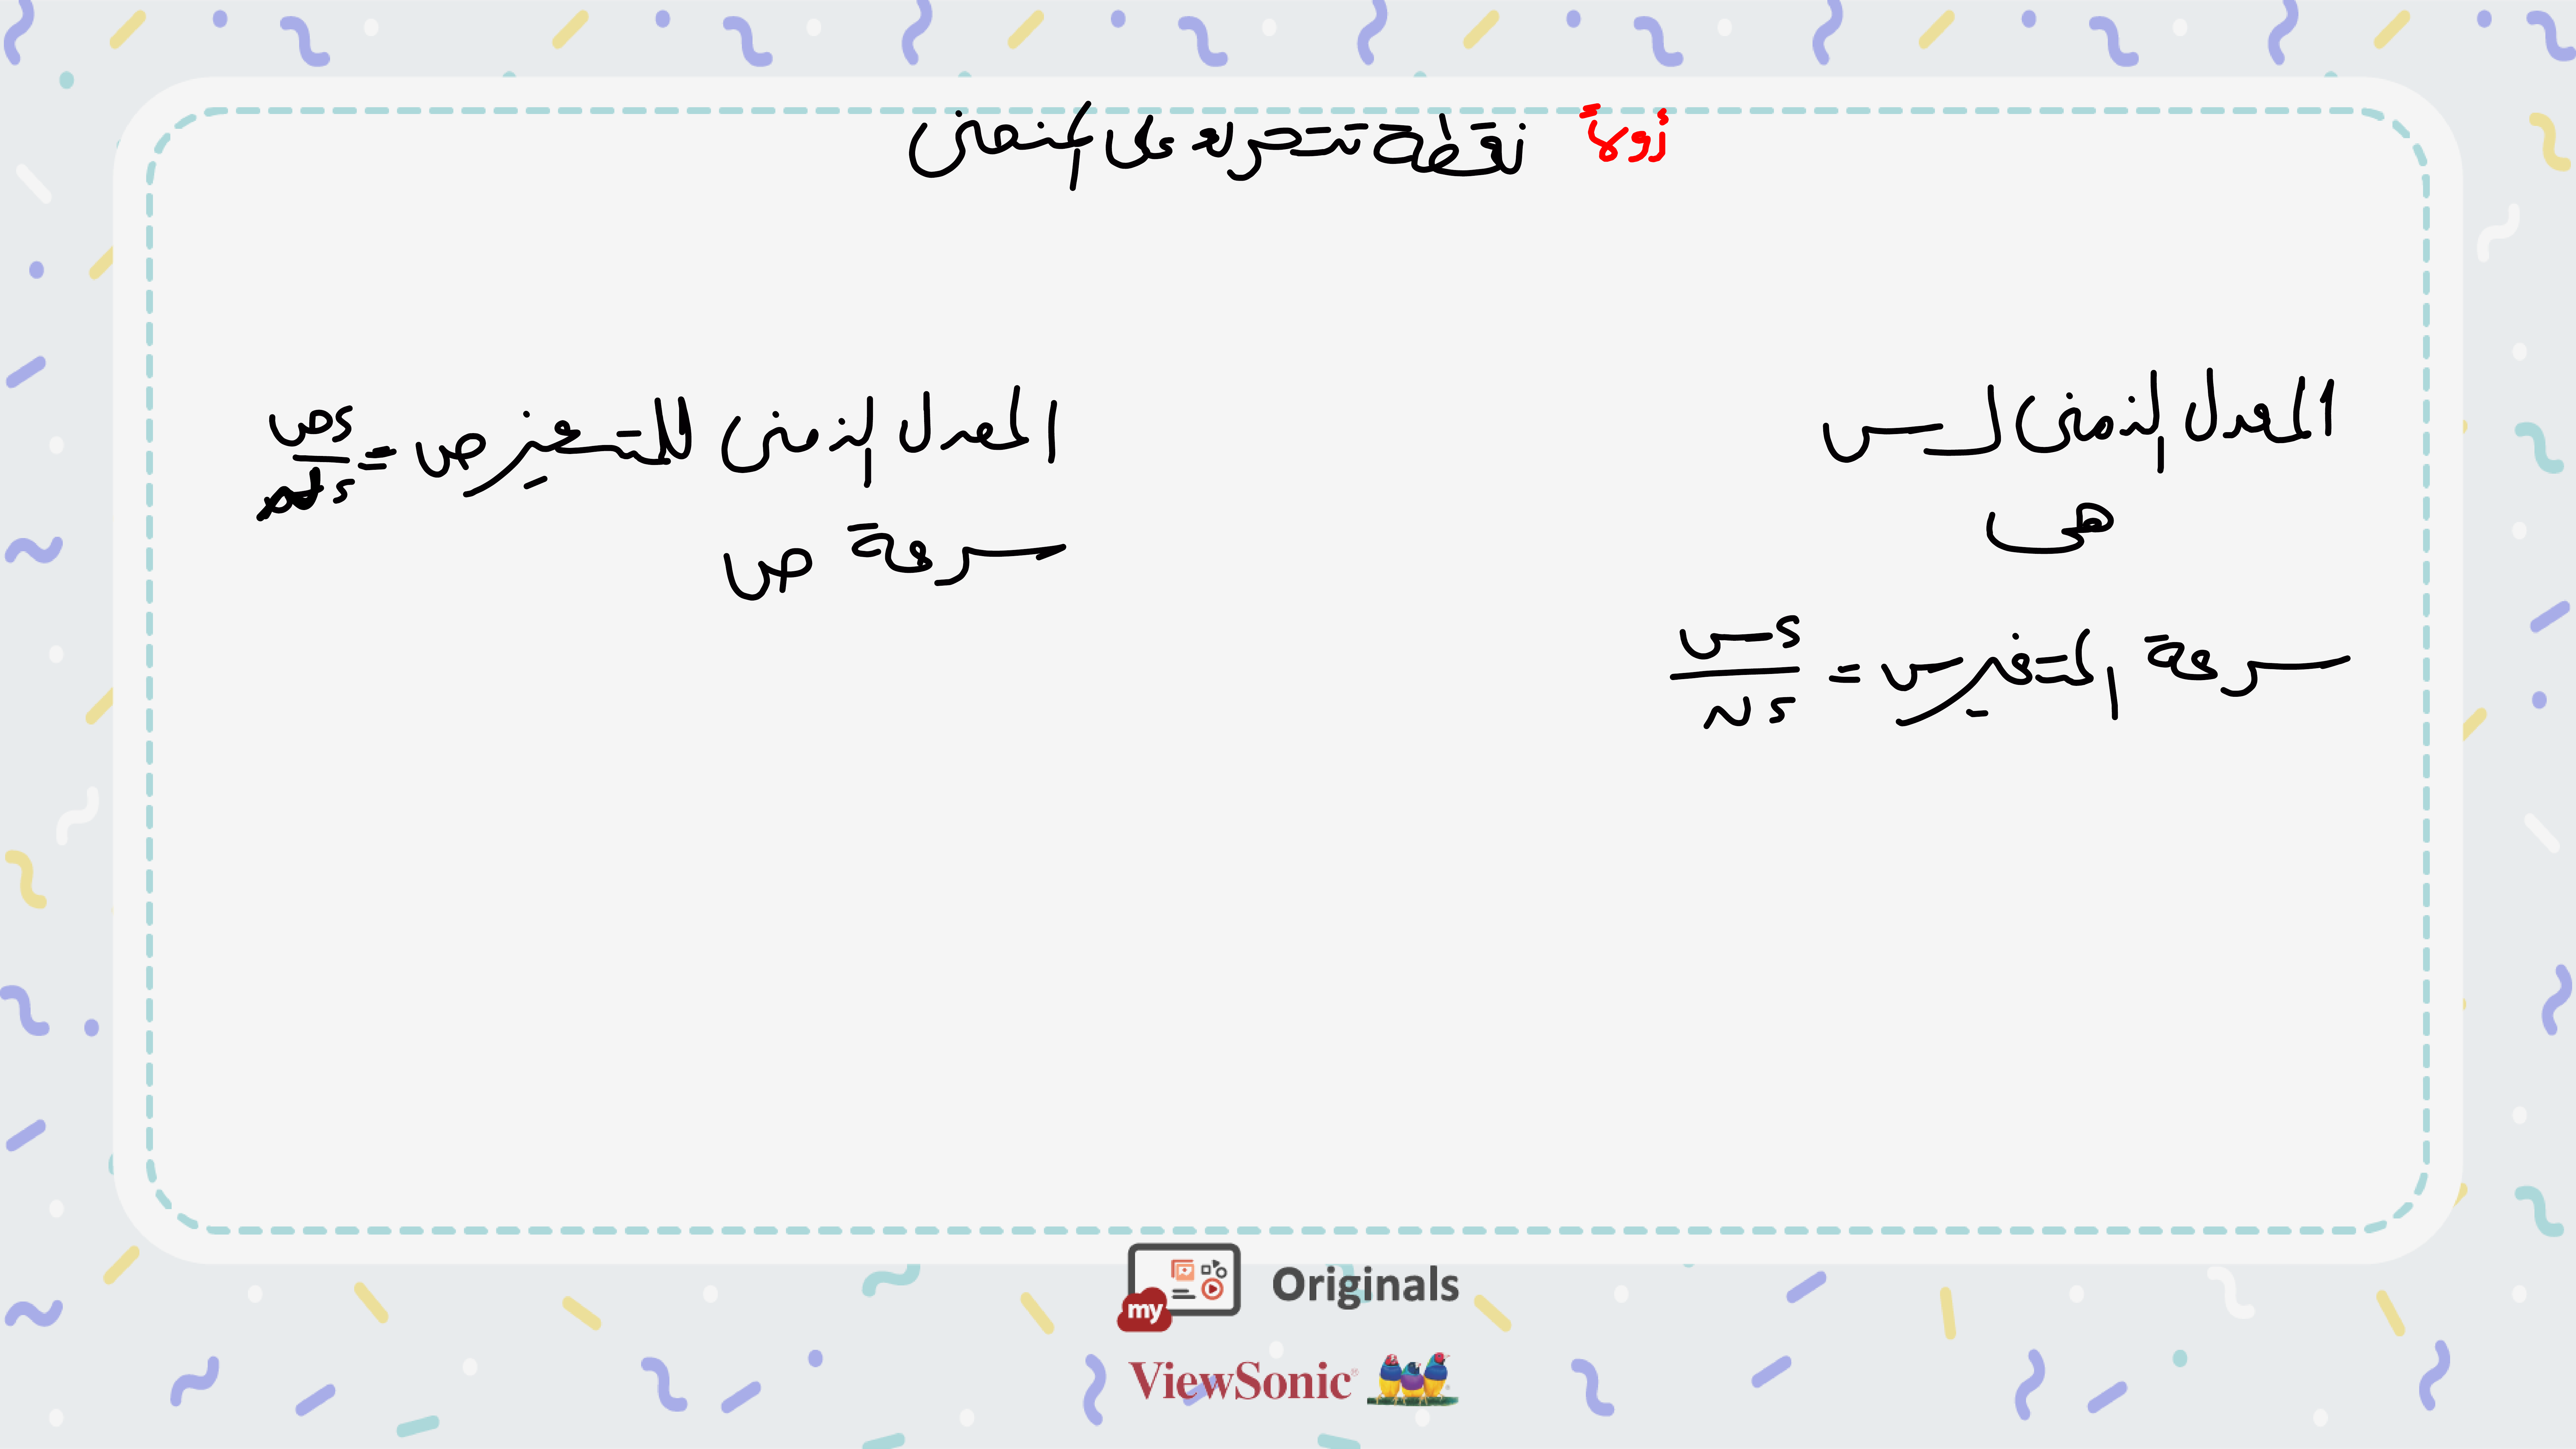 أولاً نقطة تتحرك على المنحنى
المعدل الزمنى لـ س
هى
سرعة المتغير س = ءس / ءن
المعدل الزمنى للمتغير ص = ءص / ءن
سرعة ص
my Originals
ViewSonic